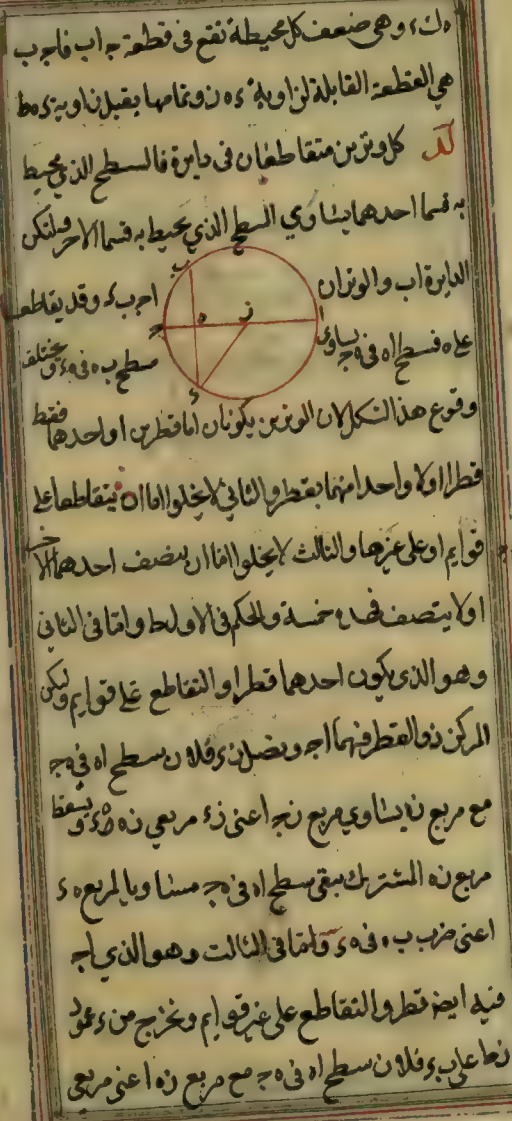 ه ك ء وهى ضعف كل محيطة تقع فى قطعة ج ا ب فاجب
هى القطعة القابلة لزاوية ء ه ن وتمامها يقبل زاوية ء ه ط
لد كل وترين متقاطعان فى دايرة فالسطح الذى يحيط
به قسما احدهما يساوى السطح الذى يحيط به قسما الاخر ولتكن
الدايرة اب والوتران
اجـ بء وقد تقاطعا
على ه فسطح اه فى هج يساوى
سطح ب ه فى هء ويختلف
وقوع هذا الشكل لان الوترين يكونان اما قطرين او احدهما فقط
قطرا اولا واحدا منهما بقطر والثانى لا يخلوا اما ان يتقاطعا على
قوايم او على غيرها والثالث لا يخلوا اما ان ينصف احدهما الاخر
اولا ينصف فهذه خمسة والحكم فى الاول ظ واما فى الثانى
وهو الذى يكون احدهما قطرا والتقاطع على قوايم وليكن
المركز ز والقطر فيهما اجـ ونصل زء فلان سطح اه فى هج
مع مربع زه يساوى مربع زجـ اعنى زء مربعى زه هء ويسقط
مربع زه المشترك يبقى سطح اه فى هج مساويا لمربع ه ء
اعنى ضرب ب ه فى هء واما فى الثالث وهو الذى اجـ
فيه ايضا قطر والتقاطع على غير قوايم ونخرج من ز عمود
زح على بء فلان سطح اه فى هج مع مربع زه اعنى مربعى
ب
ا
ز
ه
ج
ء